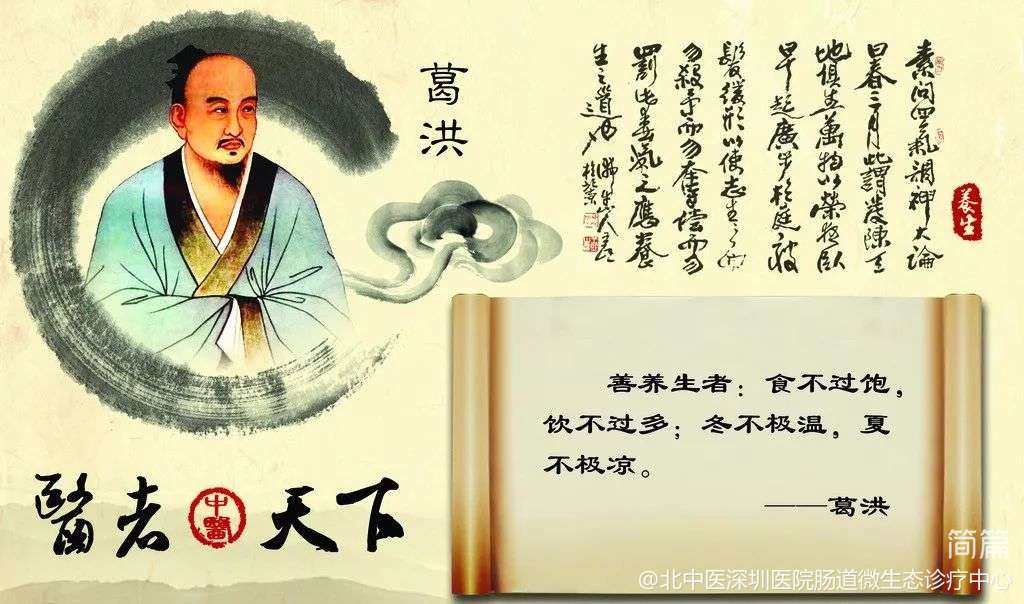 葛洪
素问四氣調神大論
曰春三月此謂發陳天
地俱生萬物以榮夜臥
早起廣步於庭被
髮緩形以使志生生而
勿殺予而勿奪賞而勿
罰此春氣之應養
生之道也
养生
善养生者：食不过饱，
饮不过多；冬不极温，夏
不极凉。
——葛洪
醫者中醫天下
简篇
@北中医深圳医院肠道微生态诊疗中心